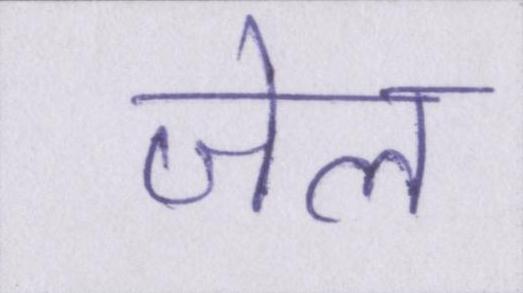 जेल